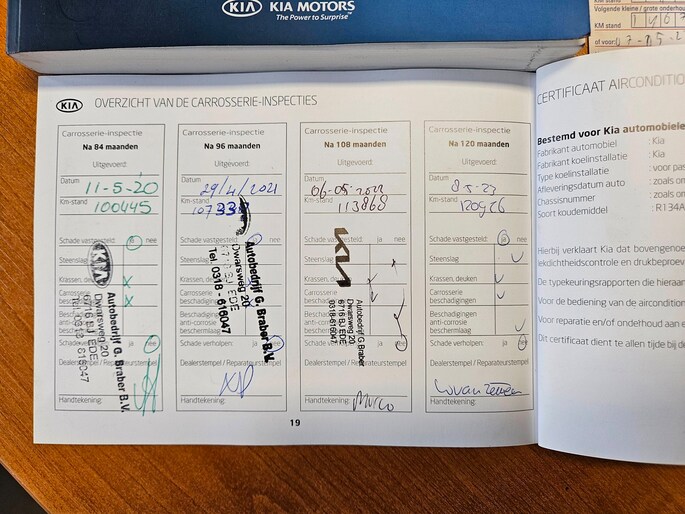 KIA KIA MOTORS
The Power to Surprise™
Volgende kleine / grote onderhoud
KM stand
of voor:
KIA OVERZICHT VAN DE CARROSSERIE-INSPECTIES
Carrosserie-inspectie
Na 84 maanden
Uitgevoerd:
Datum
11-5-20
Km-stand
100445
Schade vastgesteld: ja nee
Steenslag
Krassen, deuken x
Carrosserie
beschadigingen x
Beschadigingen
anti-corrosie
beschermlaag
Schade verholpen: ja nee
Dealerstempel / Reparateurstempel
Handtekening:
KIA
Autobedrijf G. Braber B.V.
Dwarsweg 20
6716 BJ EDE
Carrosserie-inspectie
Na 96 maanden
Uitgevoerd:
Datum
29/4/2021
Km-stand
Schade vastgesteld: ja nee
Dealerstempel / Reparateurstempel
Handtekening:
Autobedrijf G. Braber B.V.
Dwarsweg 20
6716 BJ EDE
Tel. 0318 - 616047
Carrosserie-inspectie
Na 108 maanden
Uitgevoerd:
Datum
Km-stand
113868
Schade vastgesteld: ja nee
Steenslag
Krassen, deuken
Carrosserie
beschadigingen
Beschadigingen
anti-corrosie
beschermlaag
Schade verholpen: ja nee
Dealerstempel / Reparateurstempel
Handtekening: Marco
KIA
Autobedrijf G Braber
Dwarsweg 20
6716 BJ EDE
0318-616047
Carrosserie-inspectie
Na 120 maanden
Uitgevoerd:
Datum
8-5-23
Km-stand
120926
Schade vastgesteld: ja nee
Steenslag
Krassen, deuken
Carrosserie
beschadigingen
Beschadigingen
anti-corrosie
beschermlaag
Schade verholpen: ja nee
Dealerstempel / Reparateurstempel
Handtekening:
19
CERTIFICAAT AIRCONDITION
Bestemd voor Kia automobiele
Fabrikant automobiel : Kia
Fabrikant koelinstallatie : Kia
Type koelinstallatie : voor pas
Afleveringsdatum auto : zoals om
Chassisnummer : zoals om
Soort koudemiddel : R134A
Hierbij verklaart Kia dat bovengenoe
lekdichtheidscontrole en drukbeproev
De typekeuringsrapporten die hieraan
Voor de bediening van de aircondition
Voor reparatie en/of onderhoud aan e
Dit certificaat dient te allen tijde bij de